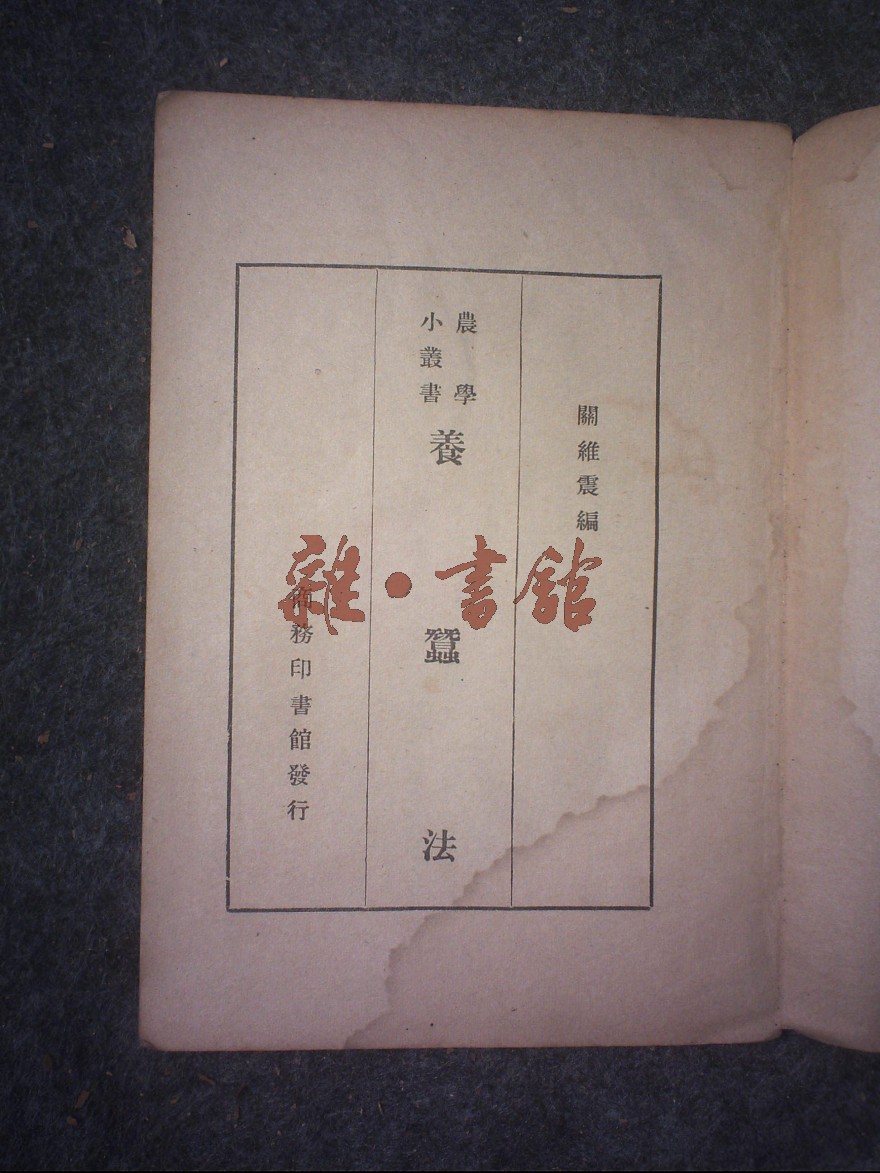 關維震編
農學
小叢書
養蠶法
商務印書館發行
雜·書館